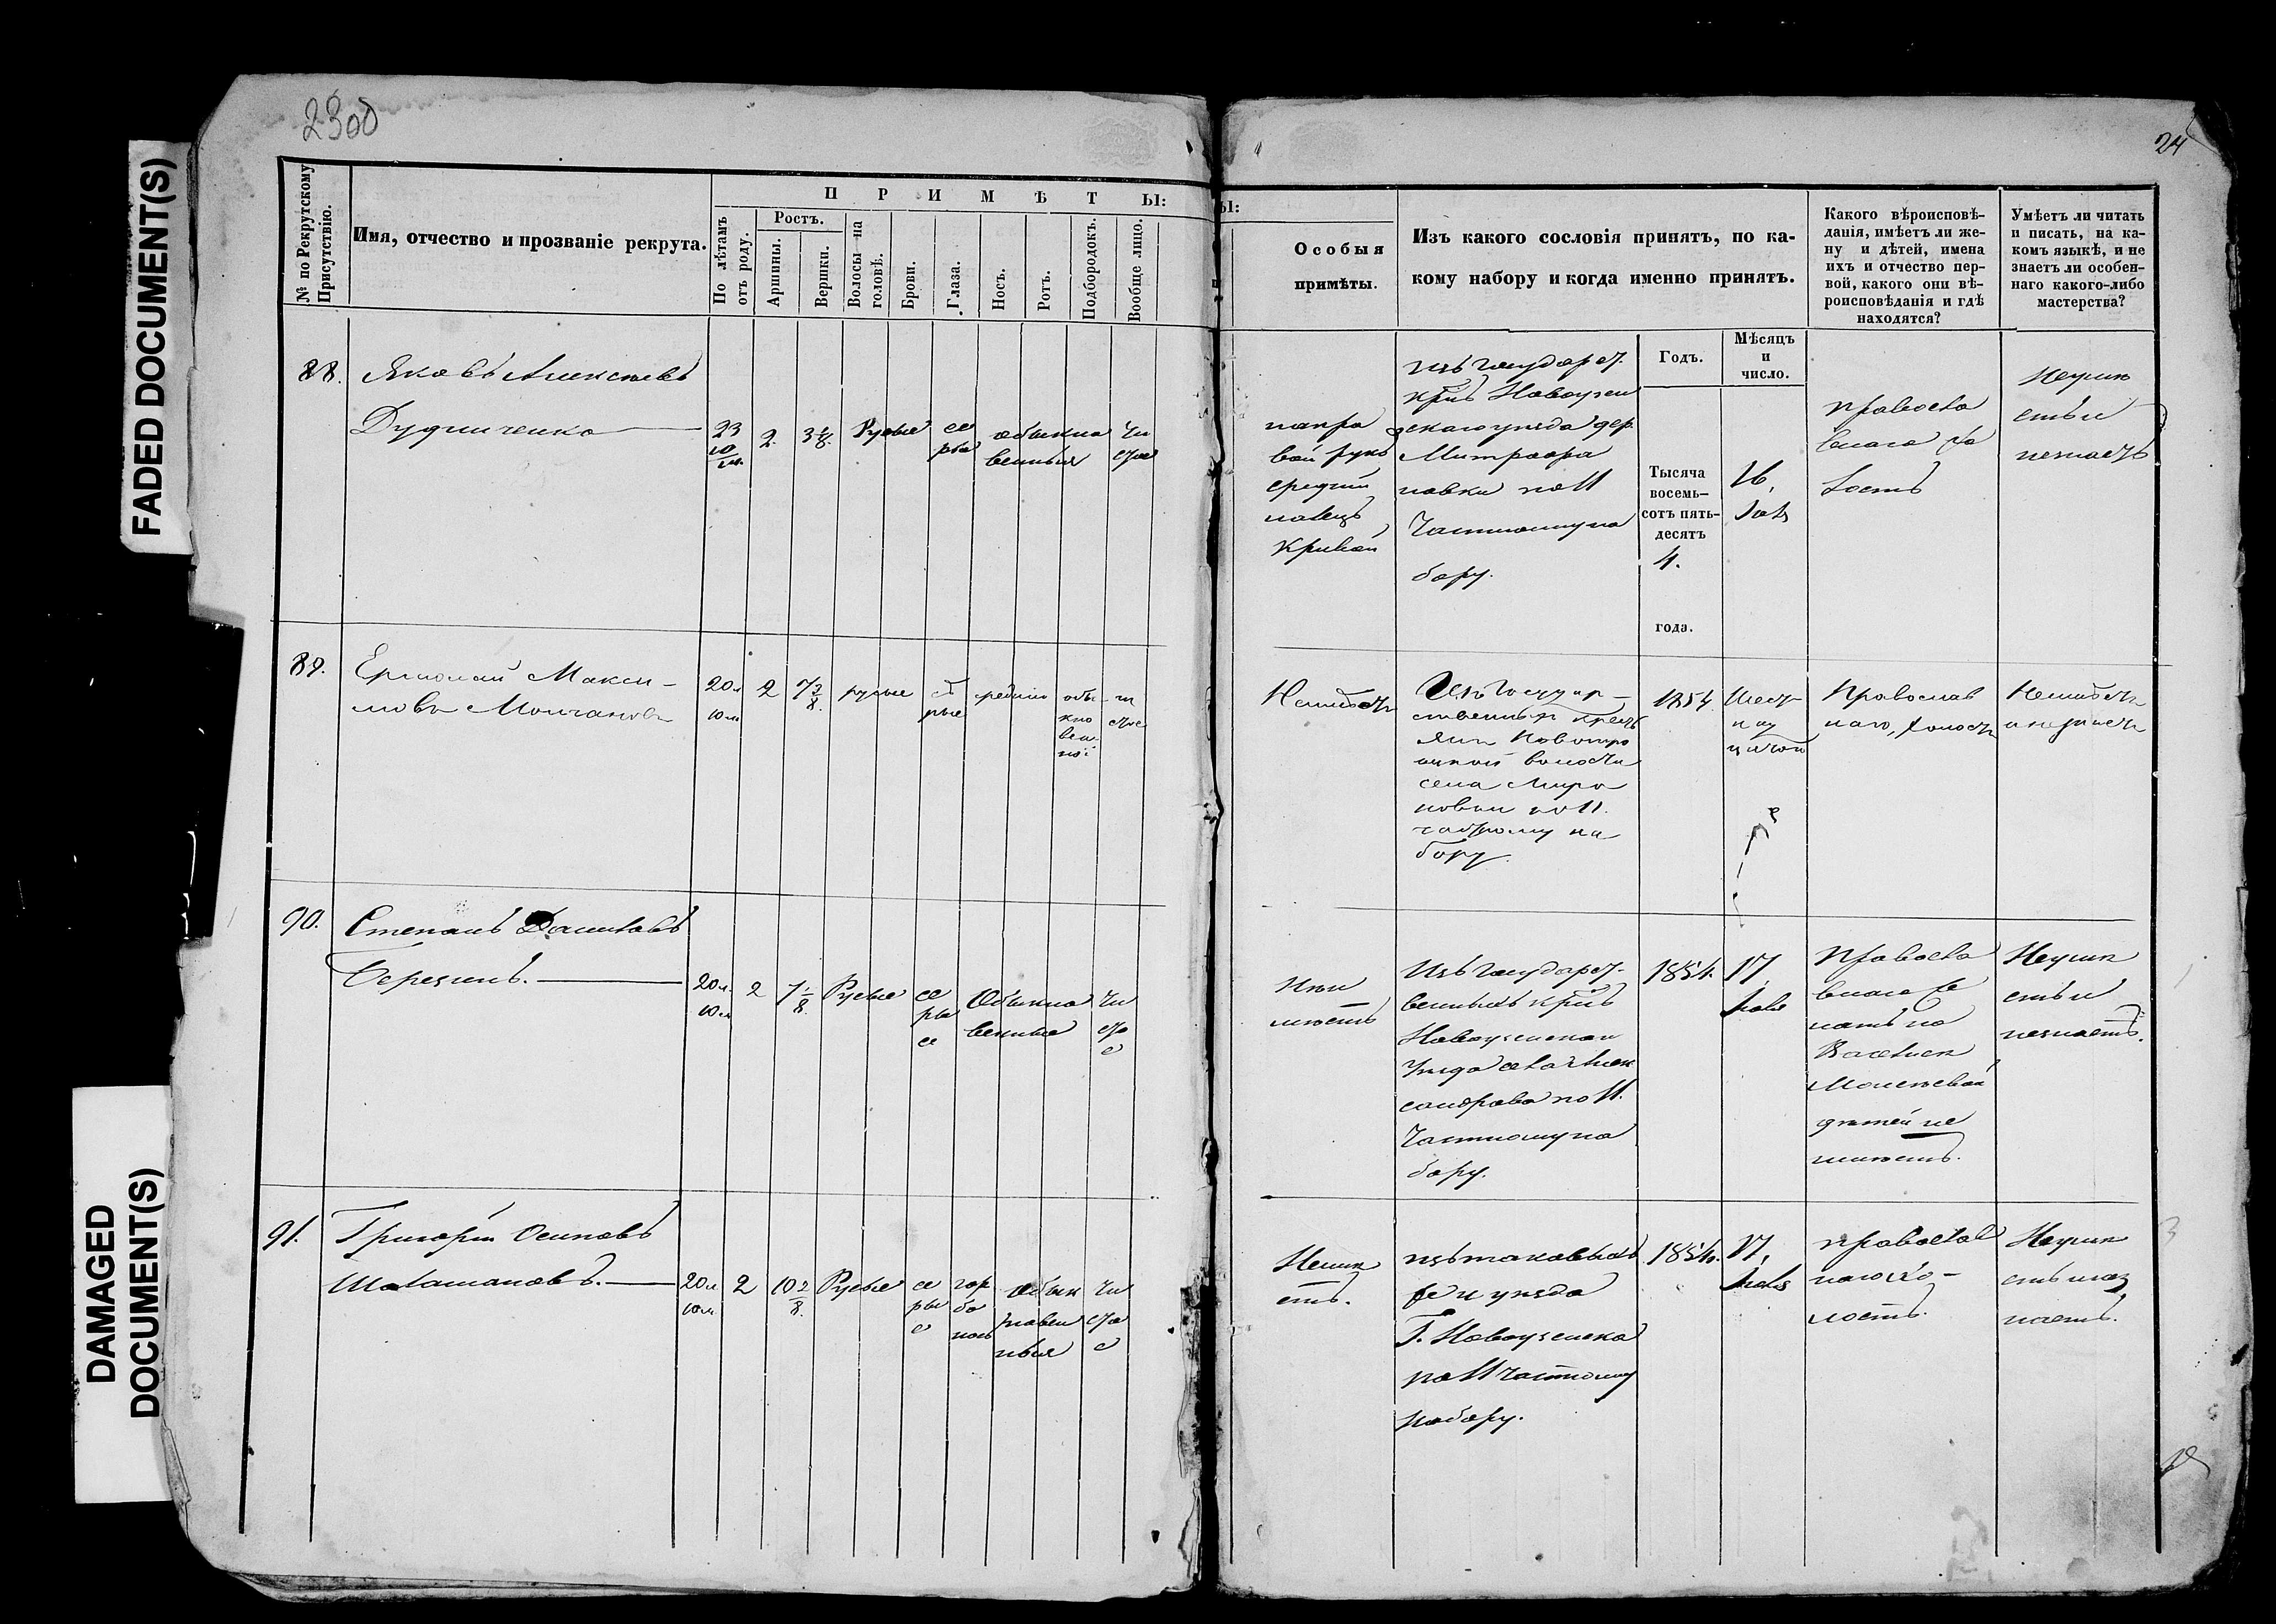 FADED DOCUMENT(S)
DAMAGED
DOCUMENT(S)
2300
24
№ по Рекрутскому
Присутствію.
Имя, отчество и прозваніе рекрута.
П Р И М Ѣ Т Ы:
По лѣтамъ
отъ роду.
Ростъ.
Аршины.
Вершки.
Волосы на
головѣ.
Брови.
Глаза.
Носъ.
Ротъ.
Подбородокъ.
Вообще лицо.
Ы:
Особыя
примѣты.
Изъ какого сословія принятъ, по ка-
кому набору и когда именно принятъ.
Какого вѣроисповѣ-
данія, имѣетъ ли же-
ну и дѣтей, имена
ихъ и отчество пер-
вой, какого они вѣ-
роисповѣданія и гдѣ
находятся?
Умѣетъ ли читать
и писать, на ка-
комъ языкѣ, и не
знаетъ ли особен-
наго какого-либо
мастерства?
Годъ.
Мѣсяцъ
и
число.
88.
Яковъ Алексѣевъ
Дудниченко
23
10
2.
3
Русые
се
рые
обыкно
венныя
чи
стое
на пра
вой рукѣ
средній
палецъ
кривой
изъ государст.
Новоузен
скаго уѣзда дер.
Митрофа
новки по 11
Частному на
бору.
Тысяча
восемь-
сотъ пять-
десятъ
4.
года.
16,
православ
наго хо
лостъ
Неумѣ
етъ и
незнаетъ
89.
Ермолай Макси-
мовъ Молчановъ
20 л
10 м
2
7 3/8.
русые
сѣ
рые
средній
обы-
кно
вен-
ной
чи
стое
Неимѣетъ
Изъ Государ-
ственныхъ кресть
янъ Новотро
ицкой волости
села Миро
новки по 11.
частному на
бору.
1854.
Шест
над
цатого
Православ
наго, холостъ
Неимѣетъ
и незнаетъ
90.
Степанъ Даниловъ
Березинъ.
20 л.
10 м
2
7 1/8.
Русые
се
ры
е
Обыкно
венные
чи
сто
е
Неи
мѣетъ
Изъ государст-
венныхъ
Новоузенскаго
уѣзда села Алек
сандрова по 11.
Частному на
бору.
1854.
17,
Православ
наго же
натъ на
Василисѣ
Моисеевой
дѣтей не
имѣетъ.
Неумѣ
етъ и
незнаетъ.
91.
Григорій Осиповъ
Шаташановъ.
20 л
10 м
2
10 2/8.
Русые
се
ры
е
гор
ба
тый
обык
новен
ныя
чи
сто
е
Неимѣ
етъ.
изъ таковыхъ
же и уѣзда
Г. Новоузенска
по 11 частному
набору.
1854.
17,
православ
наго хо-
лостъ.
Неумѣ
етъ и нез
наетъ.